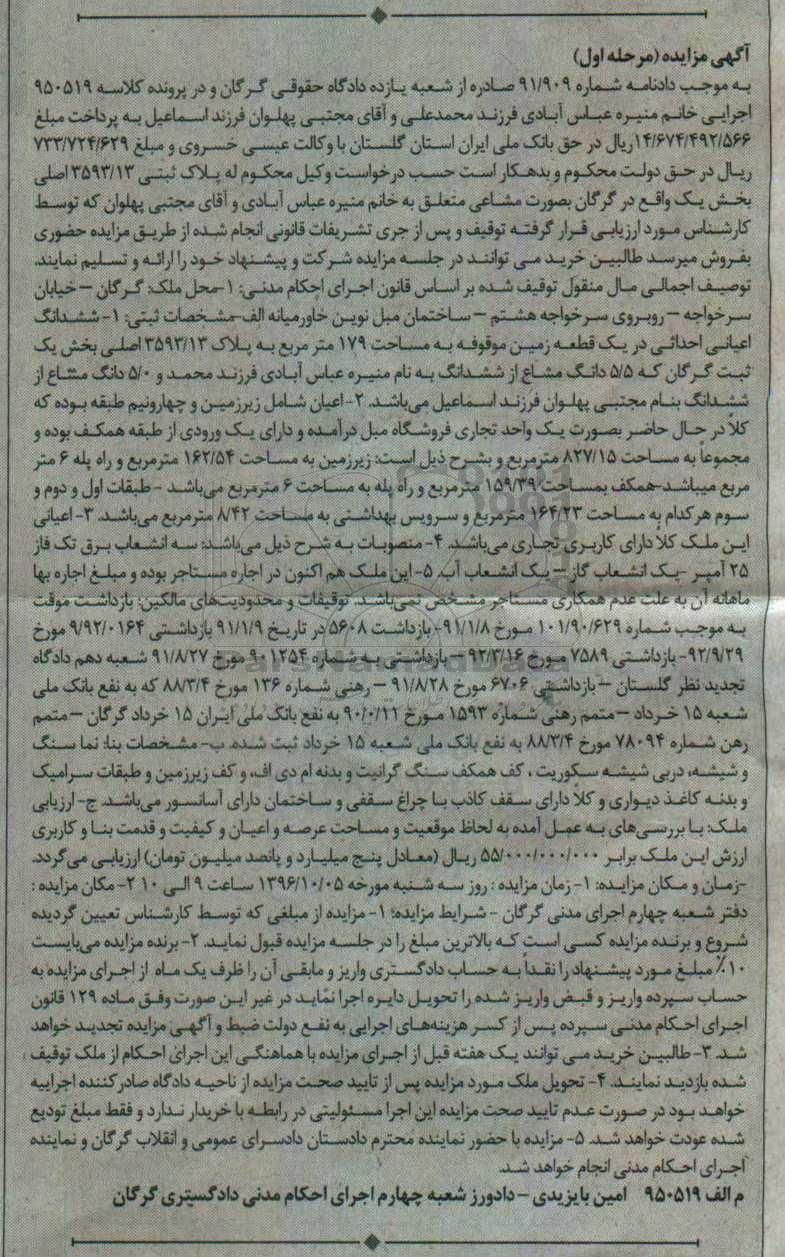 آگهی مزایده (مرحله اول)
به موجب دادنامه شماره ۹۱/۹۰۹ صادره از شعبه یازده دادگاه حقوقی گرگان و در پرونده کلاسه ۹۵۰۵۱۹
اجرایی خانم منیره عباس آبادی فرزند محمدعلی و آقای مجتبی پهلوان فرزند اسماعیل به پرداخت مبلغ
۱۴/۶۷۴/۴۹۲/۵۶۶ریال در حق بانک ملی ایران استان گلستان با وکالت عیسی خسروی و مبلغ ۷۳۳/۷۲۴/۶۲۹
ریال در حق دولت محکوم و بدهکار است حسب درخواست وکیل محکوم له پلاک ثبتی ۳۵۹۳/۱۳ اصلی
بخش یک واقع در گرگان بصورت مشاعی متعلق به خانم منیره عباس آبادی و آقای مجتبی پهلوان که توسط
کارشناس مورد ارزیابی قرار گرفته توقیف و پس از جری تشریفات قانونی انجام شده از طریق مزایده حضوری
بفروش میرسد طالبین خرید می توانند در جلسه مزایده شرکت و پیشنهاد خود را ارائه و تسلیم نمایند.
توصیف اجمالی مال منقول توقیف شده بر اساس قانون اجرای احکام مدنی: ۱-محل ملک: گرگان – خیابان
سرخواجه – روبروی سرخواجه هشتم – ساختمان مبل نوین خاورمیانه الف-مشخصات ثبتی: ۱- ششدانگ
اعیانی احداثی در یک قطعه زمین موقوفه به مساحت ۱۷۹ متر مربع به پلاک ۳۵۹۳/۱۳ اصلی بخش یک
ثبت گرگان که ۵/۵ دانگ مشاع از ششدانگ به نام منیره عباس آبادی فرزند محمد و ۵/۰ دانگ مشاع از
ششدانگ بنام مجتبی پهلوان فرزند اسماعیل می‌باشد. ۲- اعیان شامل زیرزمین و چهارونیم طبقه بوده که
کلاً در حال حاضر بصورت یک واحد تجاری فروشگاه مبل درآمده و دارای یک ورودی از طبقه همکف بوده و
مجموعاً به مساحت ۸۲۷/۱۵ مترمربع و بشرح ذیل است: زیرزمین به مساحت ۱۶۲/۵۴ مترمربع و راه پله ۶ متر
مربع میباشد-همکف بمساحت ۱۵۹/۳۹ مترمربع و راه پله به مساحت ۶ مترمربع می‌باشد - طبقات اول و دوم و
سوم هرکدام به مساحت ۱۶۴/۲۳ مترمربع و سرویس بهداشتی به مساحت ۸/۴۲ مترمربع می‌باشد. ۳- اعیانی
این ملک کلا دارای کاربری تجاری می‌باشد. ۴- منصوبات به شرح ذیل می‌باشد: سه انشعاب برق تک فاز
۲۵ آمپر -یک انشعاب گاز – یک انشعاب آب. ۵- این ملک هم اکنون در اجاره مستاجر بوده و مبلغ اجاره بها
ماهانه آن به علت عدم همکاری مستاجر مشخص نمی‌باشد. توقیفات و محدودیت‌های مالکین: بازداشت موقت
به موجب شماره ۱۰۱/۹۰/۶۲۹ مورخ ۹۱/۱/۸- بازداشت ۵۶۰۸ در تاریخ ۹۱/۱/۹ بازداشتی ۹/۹۲/۰۱۶۴ مورخ
۹۲/۹/۲۹- بازداشتی ۷۵۸۹ مورخ ۹۲/۳/۱۶ – بازداشتی به شماره ۹۰۱۲۵۴ مورخ ۹۱/۸/۲۷ شعبه دهم دادگاه
تجدید نظر گلستان – بازداشتی ۶۷۰۶ مورخ ۹۱/۸/۲۸ – رهنی شماره ۱۳۶ مورخ ۸۸/۳/۴ که به نفع بانک ملی
شعبه ۱۵ خرداد – متمم رهنی شماره ۱۵۹۳ مورخ ۹۰/۰/۱۱ به نفع بانک ملی ایران ۱۵ خرداد گرگان – متمم
رهن شماره ۷۸۰۹۴ مورخ ۸۸/۳/۴ به نفع بانک ملی شعبه ۱۵ خرداد ثبت شده. ب- مشخصات بنا: نما سنگ
و شیشه، دربی شیشه سکوریت ، کف همکف سنگ گرانیت و بدنه ام دی اف، و کف زیرزمین و طبقات سرامیک
و بدنه کاغذ دیواری و کلاً دارای سقف کاذب با چراغ سقفی و ساختمان دارای آسانسور می‌باشد. ج- ارزیابی
ملک: با بررسی‌های به عمل آمده به لحاظ موقعیت و مساحت عرصه و اعیان و کیفیت و قدمت بنا و کاربری
ارزش این ملک برابر ۵۵/۰۰۰/۰۰۰/۰۰۰ ریال (معادل پنج میلیارد و پانصد میلیون تومان) ارزیابی می‌گردد.
-زمان و مکان مزایده: ۱- زمان مزایده : روز سه شنبه مورخه ۱۳۹۶/۱۰/۰۵ ساعت ۹ الی ۱۰ ۲- مکان مزایده :
دفتر شعبه چهارم اجرای مدنی گرگان - شرایط مزایده: ۱- مزایده از مبلغی که توسط کارشناس تعیین گردیده
شروع و برنده مزایده کسی است که بالاترین مبلغ را در جلسه مزایده قبول نماید. ۲- برنده مزایده می‌بایست
۱۰٪ مبلغ مورد پیشنهاد را نقداً به حساب دادگستری واریز و مابقی آن را ظرف یک ماه از اجرای مزایده به
حساب سپرده واریز و قبض واریز شده را تحویل دایره اجرا نماید در غیر این صورت وفق ماده ۱۲۹ قانون
اجرای احکام مدنی سپرده پس از کسر هزینه‌های اجرایی به نفع دولت ضبط و آگهی مزایده تجدید خواهد
شد. ۳- طالبین خرید می توانند یک هفته قبل از اجرای مزایده با هماهنگی این اجرای احکام از ملک توقیف
شده بازدید نمایند. ۴- تحویل ملک مورد مزایده پس از تایید صحت مزایده از ناحیه دادگاه صادرکننده اجراییه
خواهد بود در صورت عدم تایید صحت مزایده این اجرا مسئولیتی در رابطه با خریدار ندارد و فقط مبلغ تودیع
شده عودت خواهد شد. ۵- مزایده با حضور نماینده محترم دادستان دادسرای عمومی و انقلاب گرگان و نماینده
اجرای احکام مدنی انجام خواهد شد.
م الف ۹۵۰۵۱۹ امین بایزیدی – دادورز شعبه چهارم اجرای احکام مدنی دادگستری گرگان